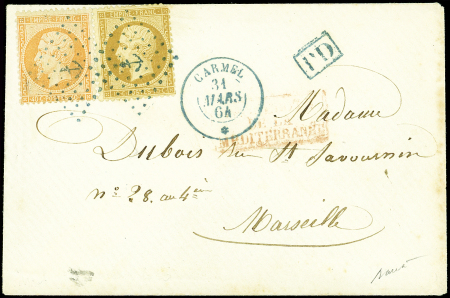 EMPIRE FRANC EMPIRE FRANC
CARMEL
31
MARS
64
*
PD
MEDITERRANEE
Madame
Dubois rue St Savournin
n° 28. au 4ième
Marseille